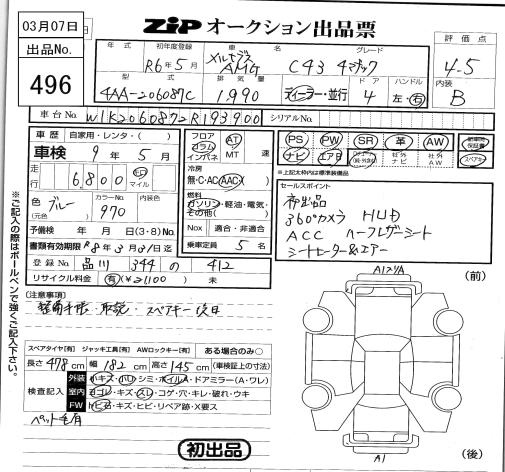 03月07日
出品No.
496
ZIP オークション出品票
年式
初年度登録 R6年5月
車名 メルセデス AMG
グレード C43 4マチック
評価点 4.5
型式 4AA-206087C
排気量 1,990
ディーラー・並行
ドア 4
ハンドル 左・右
内装 B
車台No. W1K2060872R193900
シリアルNo.
車歴 自家用・レンタ・( )
車検 9年5月
走行 6,800 km マイル
色 ブルー (元色)
カラーNo. 970
内装色
予備検 年 月 日(3・8)No.
書類有効期限 R8年3月31日迄
登録No. 品川 344 の 412
リサイクル料金 有(¥21100) 未
フロア コラム インパネ
AT MT 速
冷房 無・C・AC・AAC
燃料 ガソリン・軽油・電気・その他( )
Nox 適合・非適合
乗車定員 5名
PS PW SR 革 AW
ナビ エアB 社外ナビ 社外AW
スペアキー
※上記太枠内は標準装備品
セールスポイント
360°カメラ HUD
ACC ハーフレザーシート
シートヒーター&エアー
(注意事項)
整備手帳・取説・スペアキー後日
スペアタイヤ[有] ジャッキ工具[有] AWロックキー[有] ある場合のみ○
長さ 478 cm 幅 182 cm 高さ 145 cm (車検証上の寸法)
検査記入
外装 小キズ・小凹・シミ・ホイルA・ドアミラー(A・ワレ)
室内 ヨゴレ・キズ・スレ・コゲ・穴・キレ・破れ・ウキ
FW トビ石・キズ・ヒビ・リペア跡・X要ス
ペット毛有
初出品
(前)
(後)
A1
※ご記入の際はボールペンで強くご記入下さい。